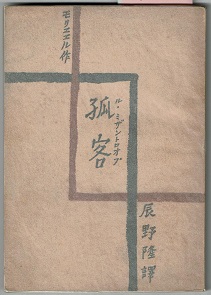 モリエエル作
孤客
ル・ミザントロオプ
辰野隆譯